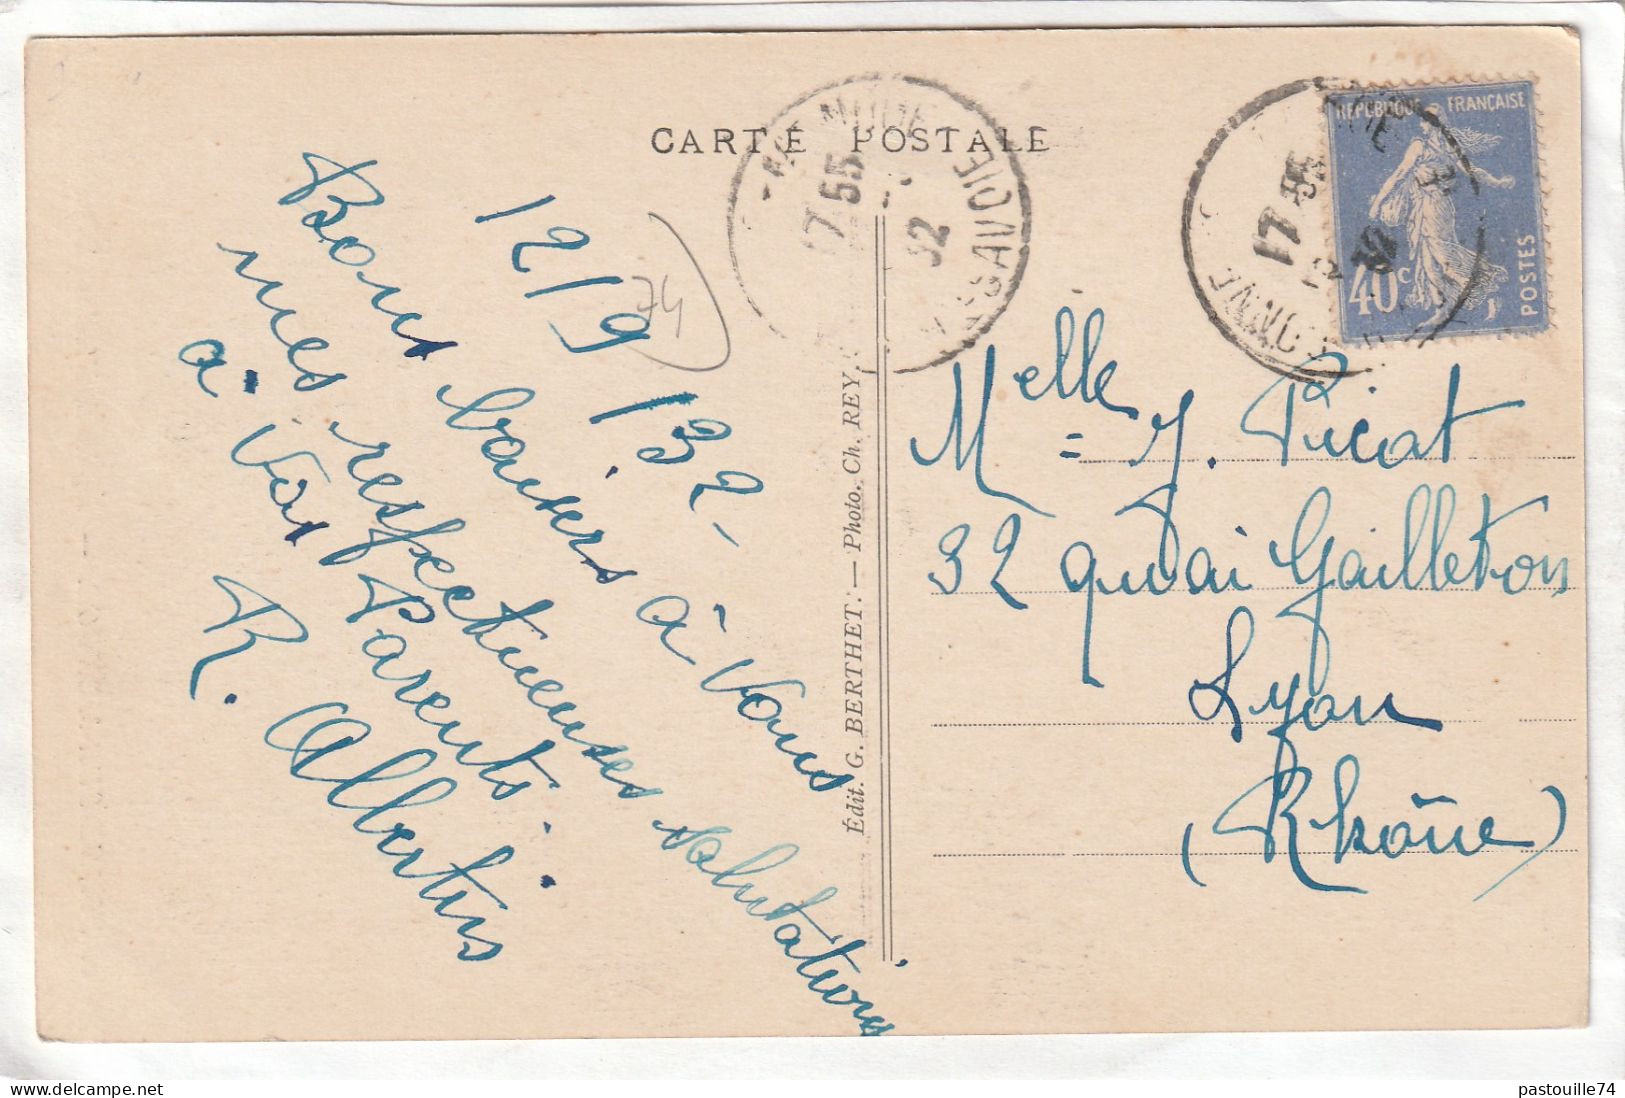 CARTE POSTALE
12/9/32-
Bons baisers à Vous
mes respectueuses salutations
à Vos Parents.
R. Albertus
74
Édit. G. BERTHET. — Photo. Ch. REY.
17 55
32
SAVOIE
17 55
32
REPUBLIQUE FRANÇAISE
40c
POSTES
Melle = J. Picot
32 quai Gailleton
Lyon
(Rhône)
delcampe.net
pastouille74